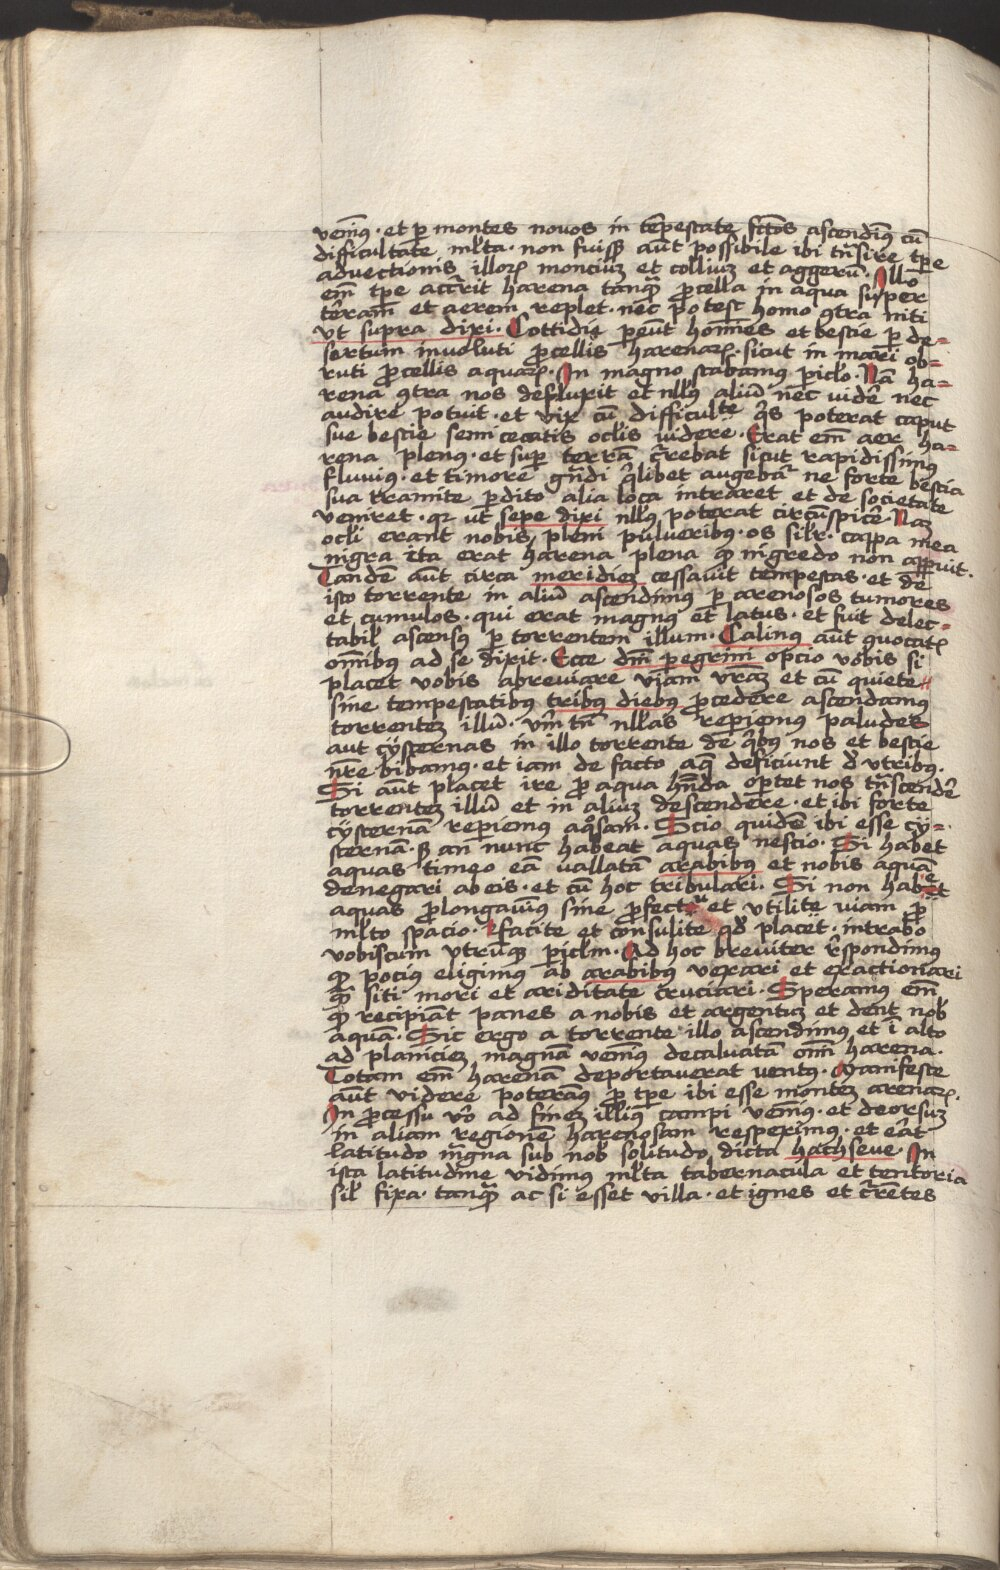 vem̄9 · et ꝑ montes novos in tēpestate fctōs ascendim9 cū
difficultate ml̄ta · non fuissꝫ aūt possibile ibi tn̄sire tp̄e
advectionis illoꝝ moncium et collium et aggerū · Illo
em̄ tp̄e accr̄rit harena tanqꝫ ꝓcella in aqua super
terram et aerem replet · nec potest homo ꝯtra niti
ut supra dixi · Cottidie ꝑeūt homines et bestie ꝑ de=
sertum involuti ꝓcellis harenaꝝ · sicut in mari ob=
ruti ꝓcellis aquaꝝ · In magno stabamus ꝑiclo · Nā ha=
rena ꝯtra nos defluxit et nll9 aliū nec videre nec
audire potuit · et vix cū difficulte qis poterat caput
sue bestie semicecatis oclis videre · Erat em̄ aer ha=
rena plenus · et suꝑ terrā crebat sicut rapidissimus
fluvius · et timorē gn̄di qlibet augebat ne forte bestia
sua tramite ꝑdito alia loca intraret et de societate
veniret · qr ut sepe dixi nll9 poterat circūspicere Nam
ocli erant nobis pleni pulveribus · os silr · cappa mea
nigra ita erat harena plena qꝫ nigredo non apparuit ·
Tandē aūt circa meridiem cessavit tempestas · et de
isto torrente in aliū ascendimus ꝑ arenosos tumores
et cumulos · qui erat magnus et latus · et fuit delec=
tabil ascensus ꝑ torrentem illum · Calinus aūt quocatꝭ
omībus ad se dixit · Ecce dn̄i peregrini opcio vobis si
placet vobis abreviare viam vrām et cū quiete
sine tempestatibus tribus diebus ꝓcedere ascendamus
torrentem illū · vm̄ tn̄ nll̄as reꝑiemus paludes
aut cysternas in illo torrente de qibus nos et bestie
nr̄e bibamus · et iam de facto aq̄ deficiunt d utribus ·
Si aūt placet ire ꝓ aqua hn̄da oportet nos tn̄scendere
torrentem illū et in alium descendere · et ibi forte
cysternā reꝑiemus aqosam · Scio quidē ibi esse cy=
sternā · sꝫ an nunc habeat aquas nescio · Si habet
aquas timeo eā vallatā arabibus et nobis aquā
denegari ab eis · et cū hoc tribulari · Si non habet
aquas ꝓlongavim9 sine ꝓfectu et utilite viam ꝓ
ml̄to spacio · Facite et consulite qd placet · intrabo
vobiscum utrumqꝫ ꝑiclm · Ad hoc breviter r̄spondimus
qꝫ pocius eligimus ab arabibus vexari et exactionari
qꝫ siti mori et ariditate cruciari · Speramus em̄
qꝫ recipiāt panes a nobis et argentum et dent nob
aquā · Sic ergo a torrente illo ascendimus et ī alto
ad planiciem magnā vem̄9 decalvatā om̄i harena ·
Totam em̄ harenā deportaverat ventus · Manifeste
aūt videre poteram9 ꝓ tp̄e ibi esse montem arenaꝝ ·
In ꝓcessu vo ad finem illius campi vem̄9 · et deorsum
in aliam regionē harenosam respeximus · et erat
latitudo mgna sub nob solitudo dicta hachseve · In
ista latitudine vidimus ml̄ta tabernacula et tentoria
sil fixa · tanqꝫ ac si esset villa · et ignes et crētes